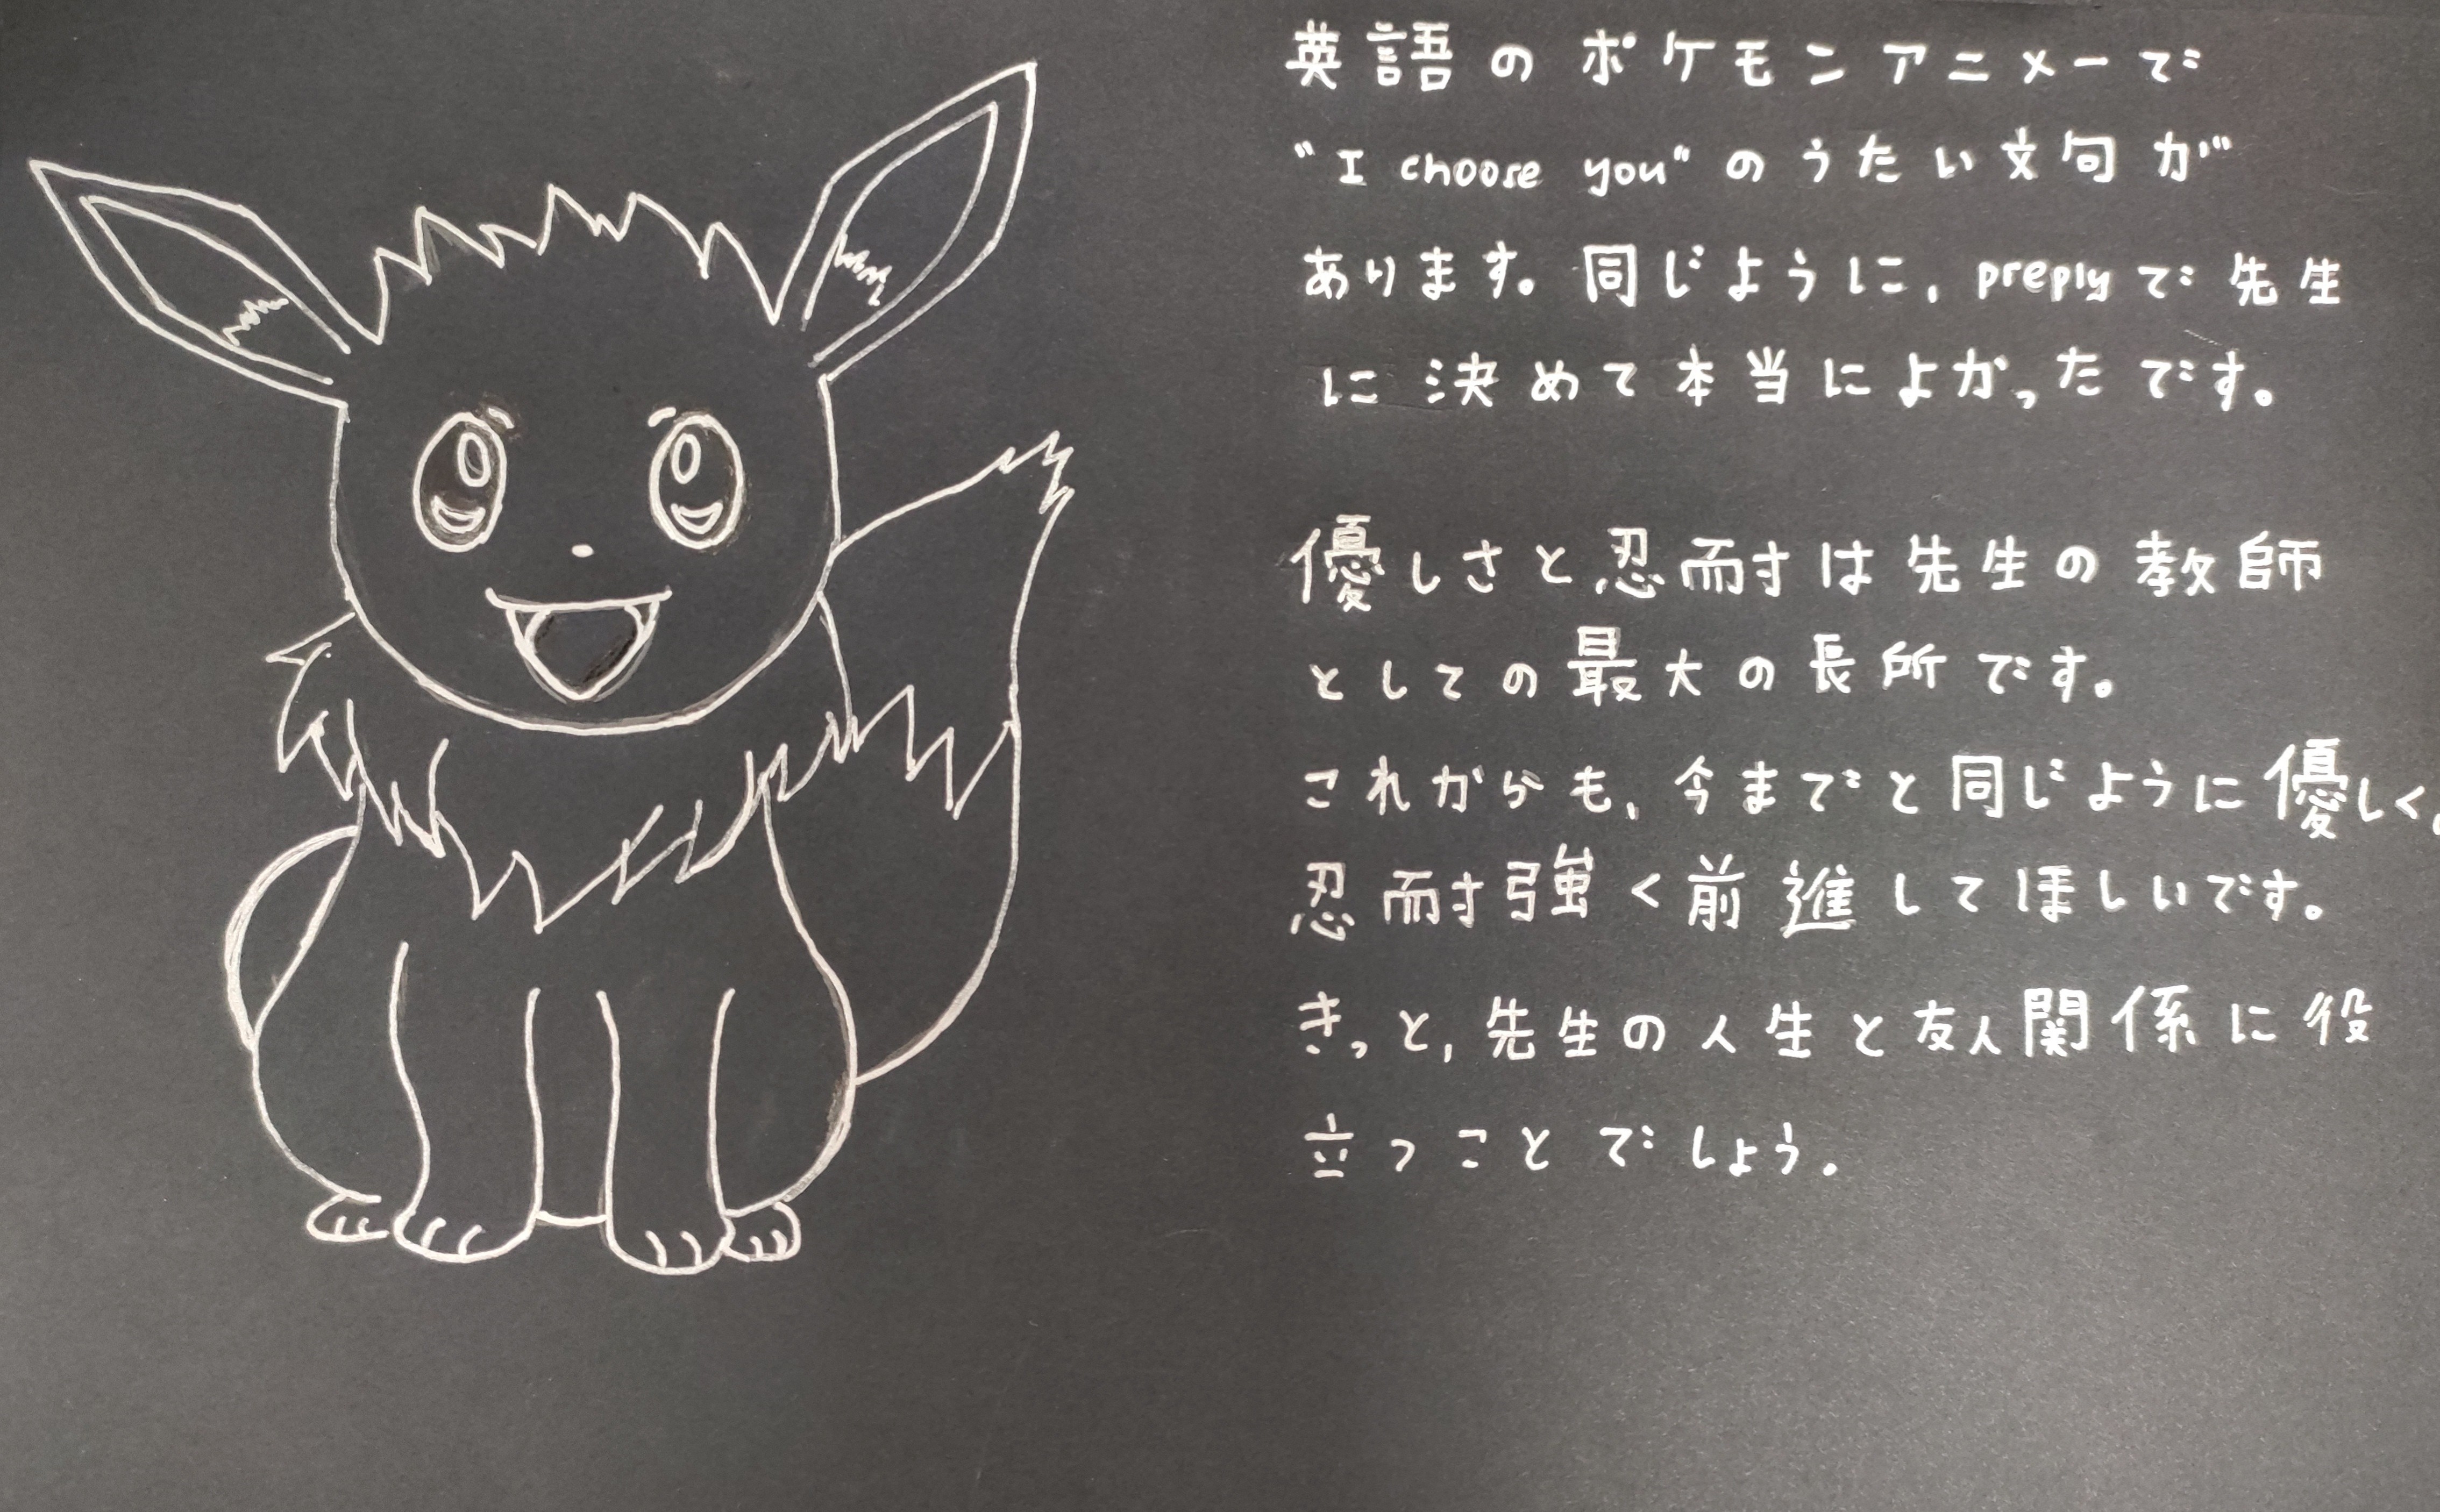 英語のポケモンアニメーで
"I choose you"のうたい文句が
あります。同じように、preplyで先生
に決めて本当によかったです。
優しさと忍耐は先生の教師
としての最大の長所です。
これからも、今までと同じように優しく、
忍耐強く前進してほしいです。
きっと、先生の人生と友人関係に役
立つことでしょう.